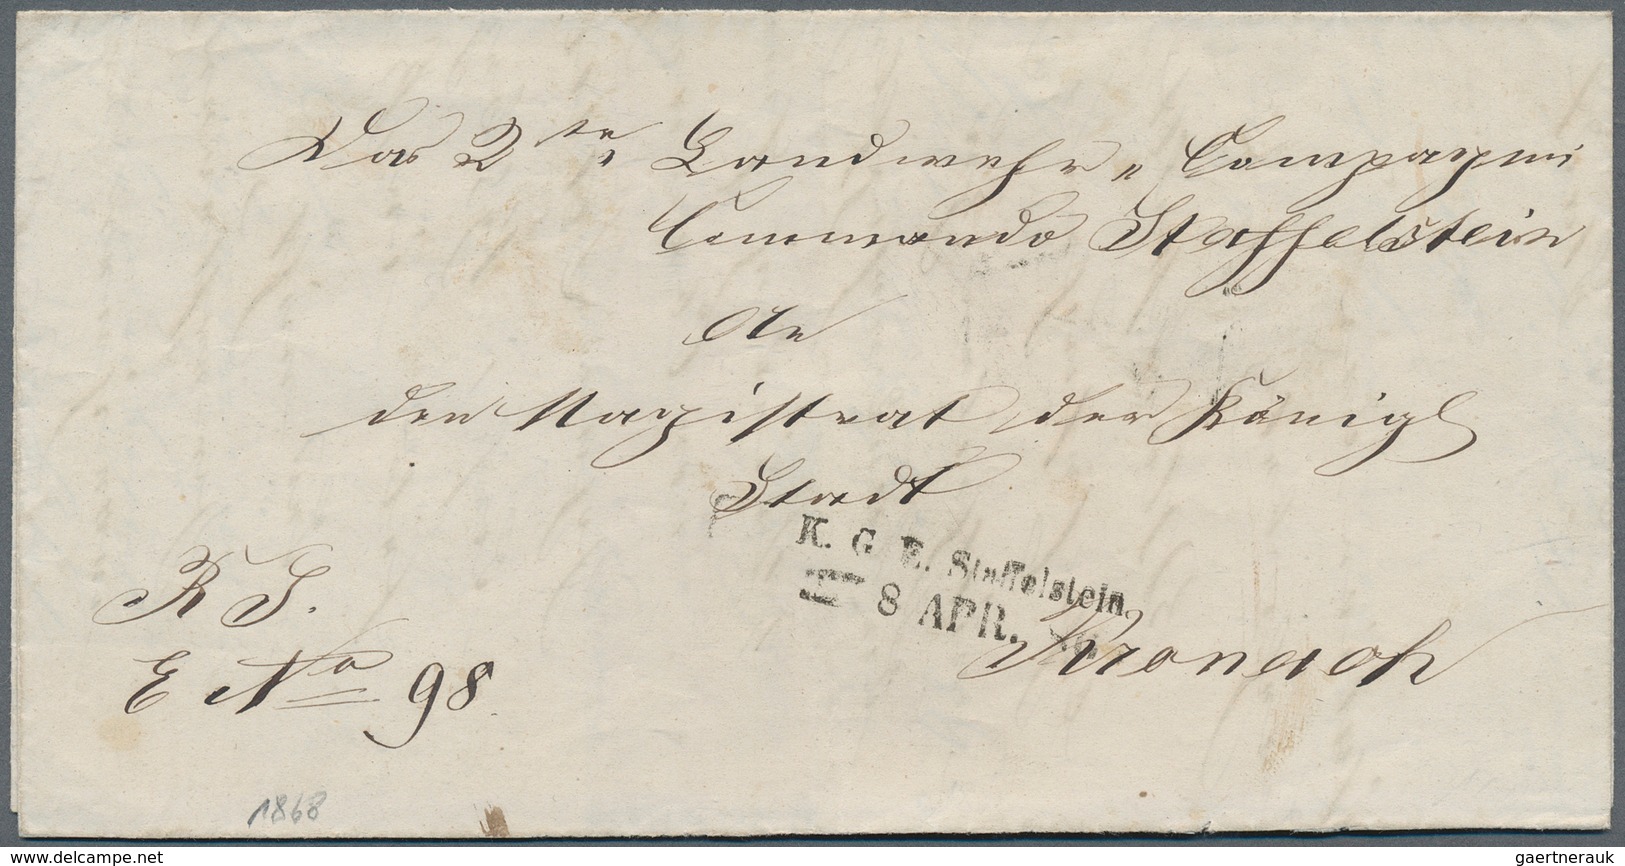 Das 2te Landwehr-Compagni
Commando Staffelstein
An
den Magistrat der Königl
Stadt
K. G. E. Staffelstein.
8 APR.
Kronach
R S.
E No 98
1868
www.delcampe.net
gaertnerauk